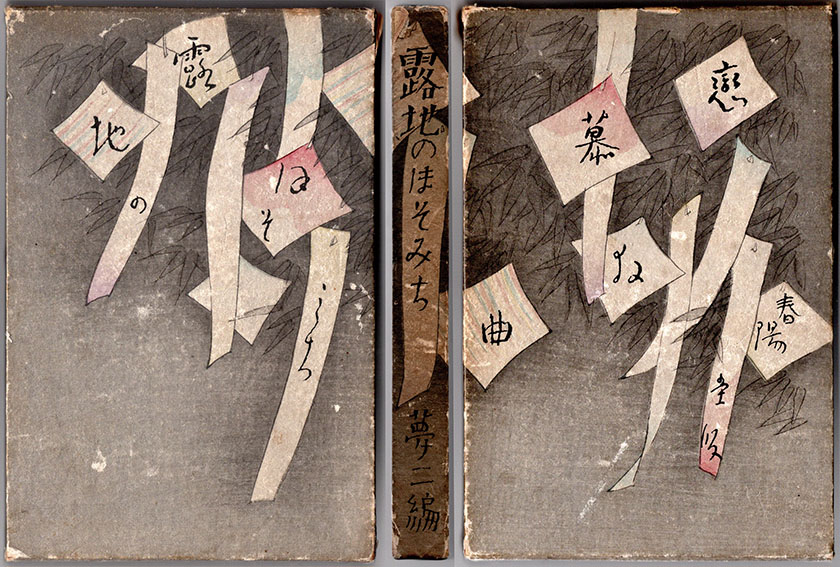 露
地
の
ほ
そ
みち
露地のほそみち
夢二編
戀
慕
曲
春陽
堂版